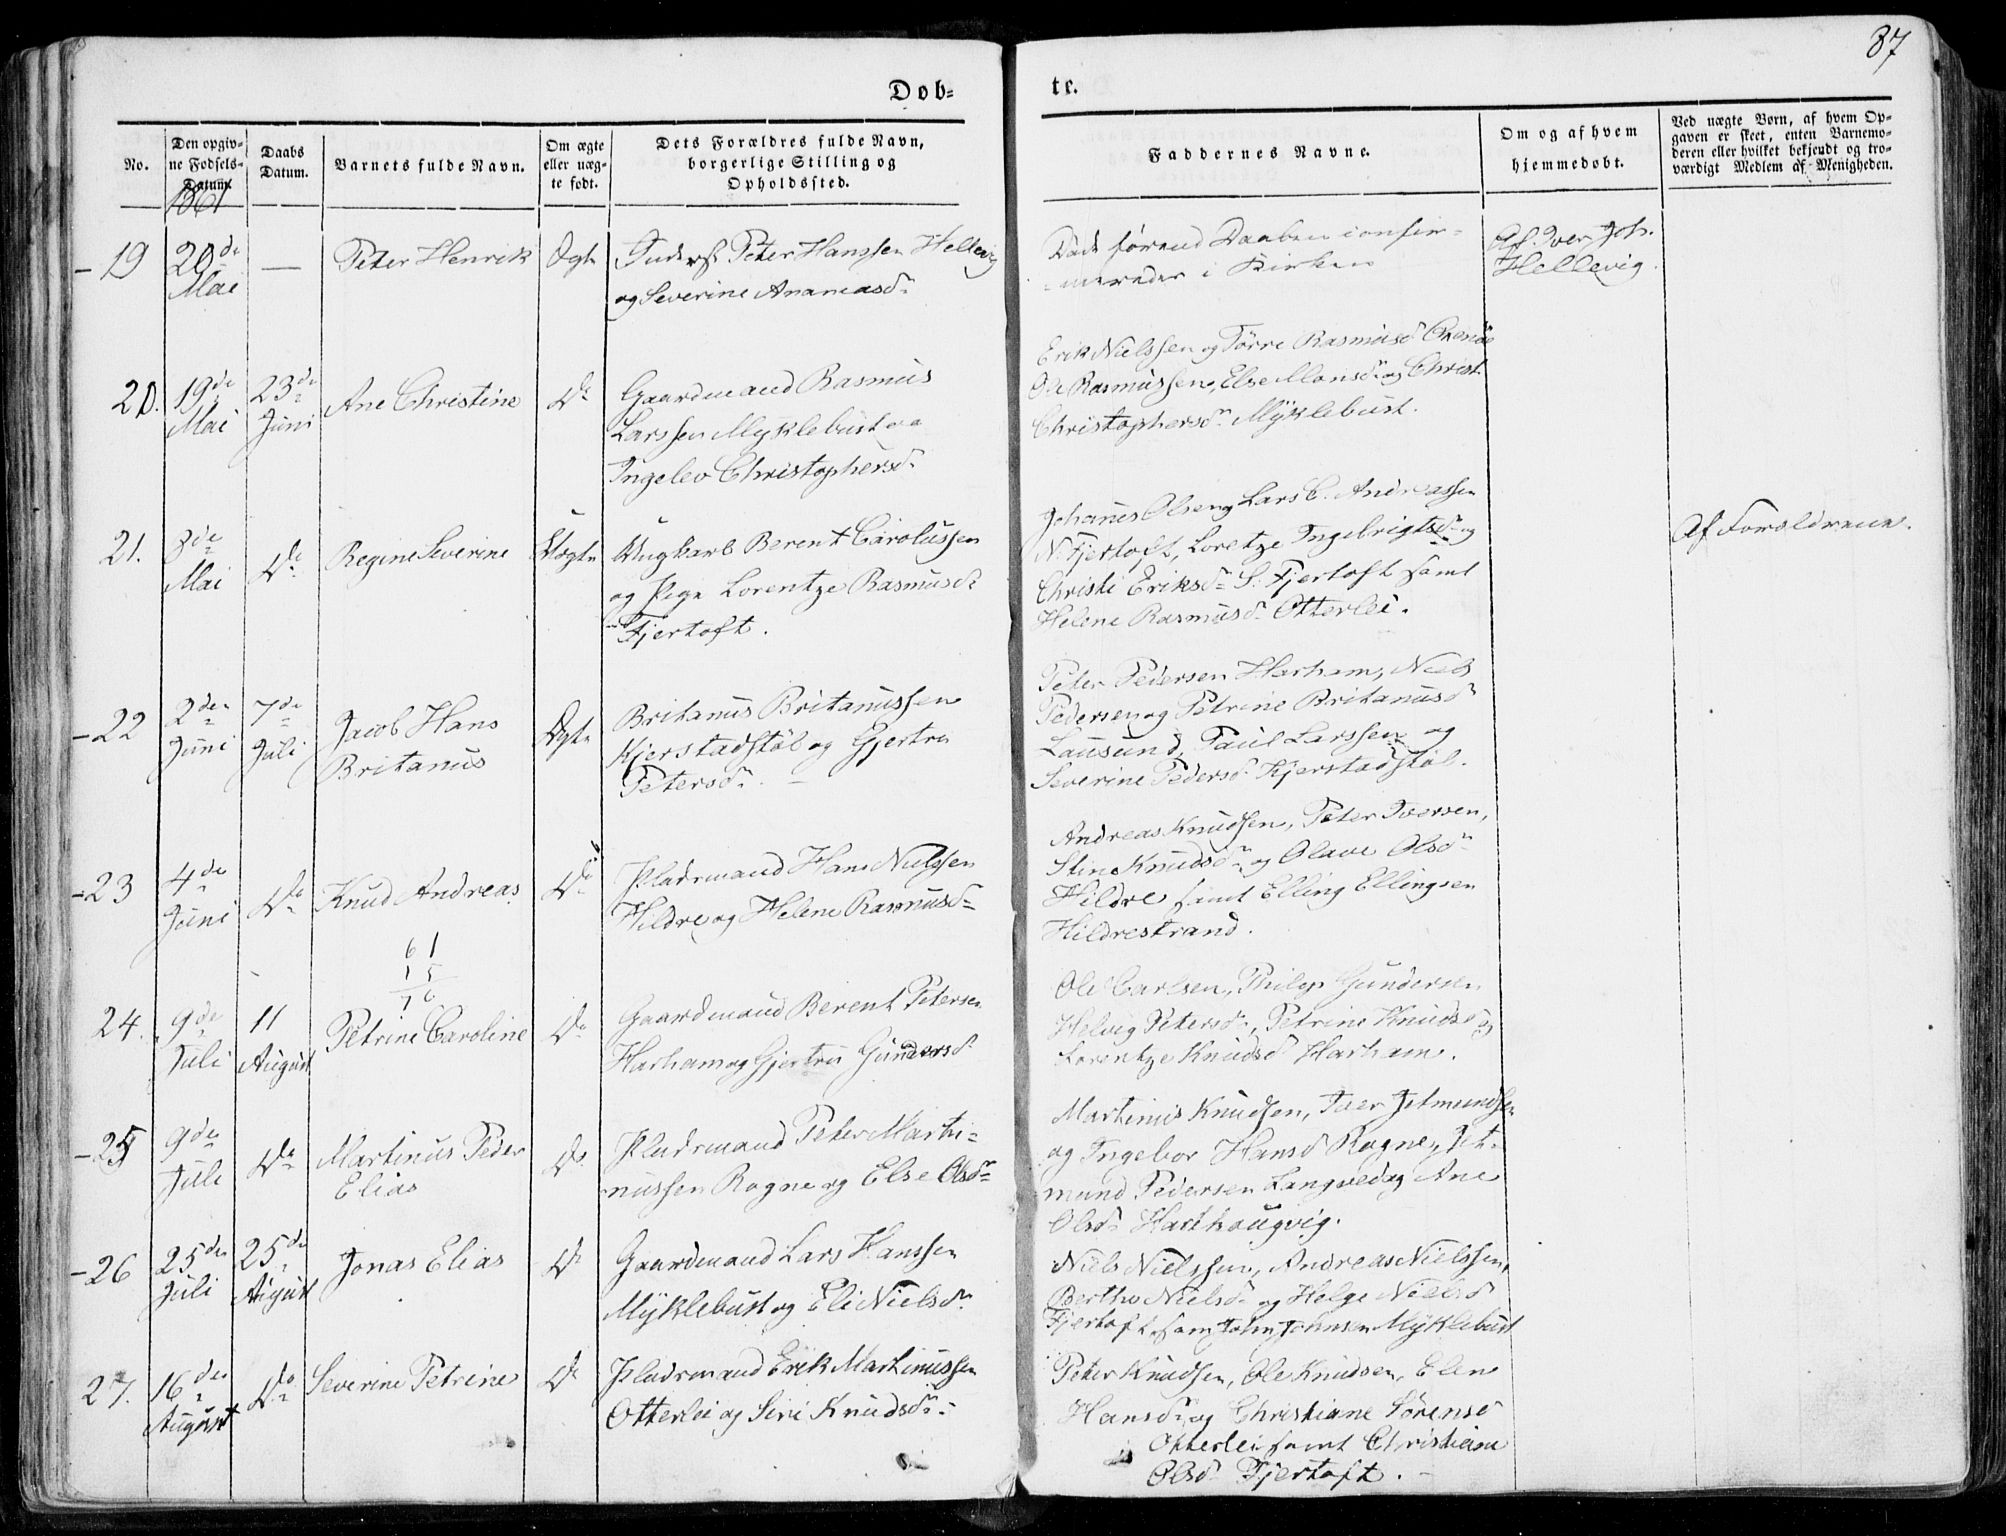 87
Døb-
te.
No.
Den opgiv-
ne Fødsels-
Datum.
1861
Daabs
Datum.
Barnets fulde Navn.
Om ægte
eller uæg-
te født.
Dets Forældres fulde Navn,
borgerlige Stilling og
Opholdssted.
Faddernes Navne.
Om og af hvem
hjemmedøbt.
Ved uægte Børn, af hvem Op-
gaven er skeet, enten Barnemo-
deren eller hvilket bekjendt og tro-
værdigt Medlem af Menigheden.
19
20de
Mai
—
Peter Henrik
Ægte
Inderst Peter Hanssen Hellevig
og Severine Ananiasd.
Død førend Daaben confir-
merades i Kirken
Af Iver Joh.
Hellevig.
20.
19de
Mai
23de
Juni
Ane Christine
Do
Gaardmand Rasmus
Larssen Myklebust og
Ingelev Christophersd.
Erik Nielssen og Tørre Rasmusd.
Ole Rasmussen, Else Monsd. og Christ.
Christophersd. Myklebust.
21.
3de
Mai
Do
Regine Severine
Uægte
Ungkarl Berent Carolussen
og Pige Lorentze Rasmusd.
Fjertoft.
Johannes Olsen og Lars C. Andreassen
N. Fjertoft, Loretze Ingebrigtsd. og
Christi Eriksd. S. Fjertoft samt
Helene Rasmusd. Otterlei.
Af Forældrene.
22
2den
Juni
7de
Juli
Jacob Hans
Britanus
Ægte
Britanus Britanussen
Kjerstadstøl og Gjertru
Petersd.
Peter Pedersen Harham, Niels
Pedersen og Petrine Britanusd.
Lausund, Paul Larssen og
Severine Pedersd. Kjerstadstøl.
23
4de
Juni
Do
Knud Andreas
Do
Pladsmand Hans Nielssen
Hildre og Helene Rasmusd.
Andreas Knudsen, Peter Iversen,
Stine Knudsd. og Olave Olsd.
Hildre samt Elling Ellingsen
Hildrestrand.
61
15
76
24.
9de
Juli
11
August
Petrine Caroline
Do
Gaardmand Berent Petersen
Harham og Gjertru Gundersd.
Ole Carlsen, Philip Gundersen
Helvig Petersd., Petrine Knudsd. og
Lorentze Knudsd. Harham.
25
9de
Juli
Do
Martinus Peder
Elias
Do
Pladsmand Peter Marti-
nussen Rogne og Else Olsd.
Martinus Knudsen, Iver Jetmundsen
og Ingebor Hansd. Rogne, Jet-
mund Pedersen Langved og Ane
Olsd. Harhaugvig.
26
25de
Juli
25de
August
Jonas Elias
Do
Gaardmand Lars Hanssen
Myklebust og Eli Nielsd.
Niels Nielssen, Andreas Nielssen,
Berthe Nielsd. og Helge Nielsd.
Fjertoft, samt John Johnsen Myklebust
27.
16de
August
Do
Severine Petrine
Do
Pladsmand Erik Martinussen
Otterlei og Siri Knudsd.
Peter Knudsen, Ole Knudsen, Elen
Hansd. og Christiane Sørensd.
Otterlei samt Christiane
Olsd. Fjertoft.